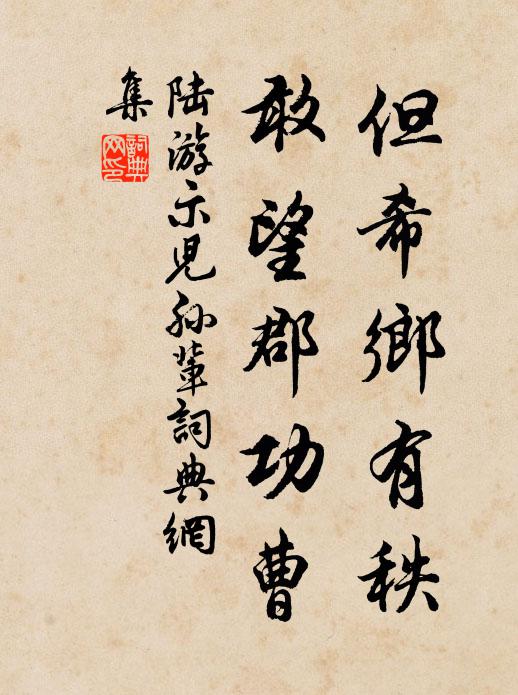 但希鄉有秩
敢望郡功曹
陸游示兒孫輩詞典網
集
詞典網印